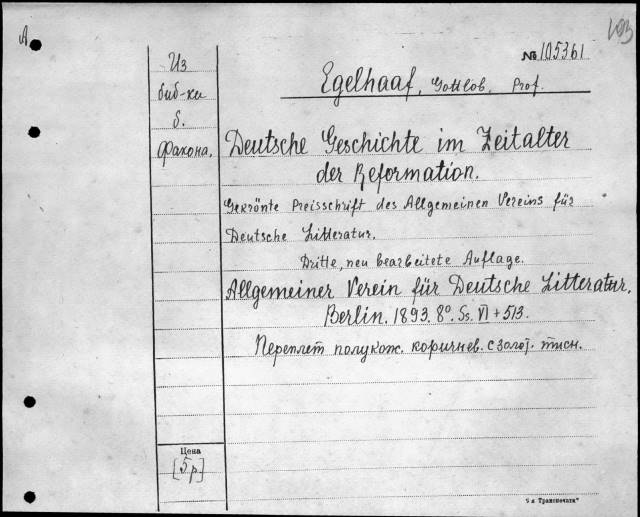 А
№ 105361
Из
биб-ки
б.
Факона.
Egelhaaf, Gottlob, Prof.
Deutsche Geschichte im Zeitalter
der Reformation.
Gekrönte Preisschrift des Allgemeinen Vereins für
Deutsche Litteratur.
Dritte, neu bearbeitete Auflage.
Allgemeiner Verein für Deutsche Litteratur,
Berlin. 1893. 8º. Ss. VI + 513.
Переплет полукож. коричнев. с золот. тисн.
Цена
[5 р.]
"9 я Транспечать"